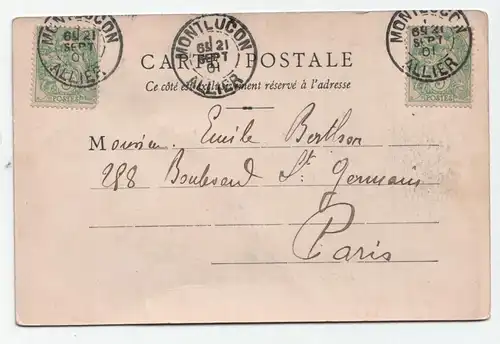 MONTLUCON
6E 21
SEPT
01
ALLIER
MONTLUCON
6E 21
SEPT
01
ALLIER
MONTLUCON
6E 21
SEPT
01
ALLIER
POSTES
POSTES
CARTE POSTALE
Ce côté est exclusivement réservé à l'adresse
Monsieur Emile Berthon
298 Boulevard St Germain
Paris